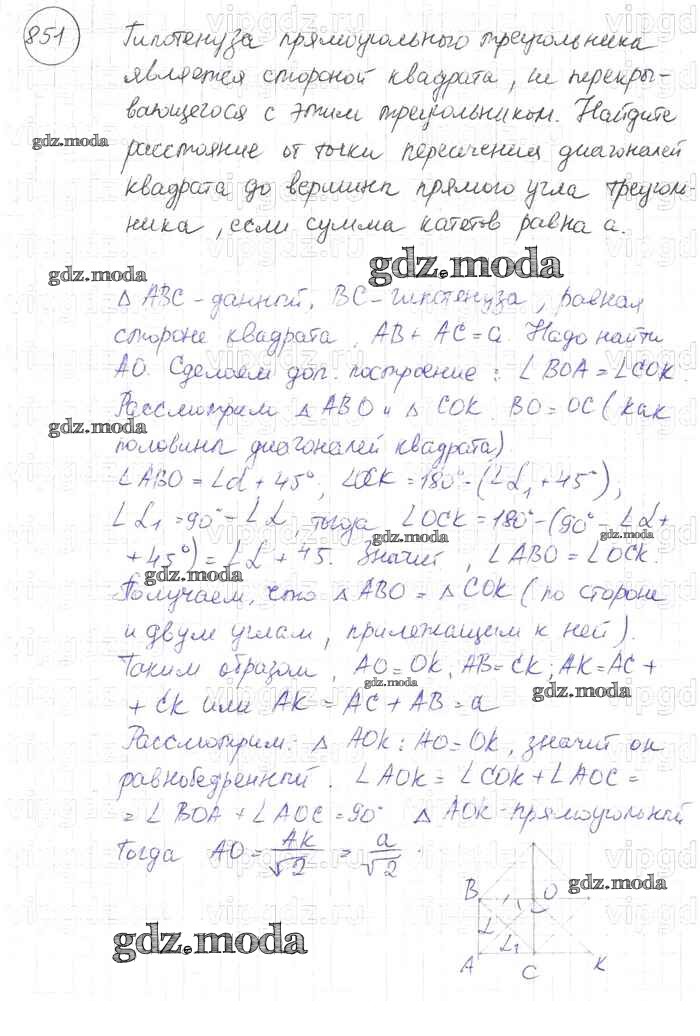 851
Гипотенуза прямоугольного треугольника
является стороной квадрата, не перекры-
вающегося с этим треугольником. Найдите
gdz.moda
расстояние от точки пересечения диагоналей
квадрата до вершины прямого угла треуголь-
ника, если сумма катетов равна a.
gdz.moda
gdz.moda
△ ABC - данный, BC - гипотенуза, равная
стороне квадрата, AB + AC = a. Надо найти
AO. Сделаем доп. построение: ∠BOA = ∠COK.
Рассмотрим △ ABO и △ COK. BO = OC (как
gdz.moda
половины диагоналей квадрата)
∠ABO = ∠α + 45°, ∠OCK = 180° - (∠α₁ + 45°),
∠α₁ = 90° - ∠α, тогда ∠OCK = 180° - (90° - ∠α +
gdz.moda
+ 45°) = ∠α + 45. Значит, ∠ABO = ∠OCK.
gdz.moda
Получаем, что △ ABO = △ COK (по стороне
и двум углам, прилежащим к ней).
Таким образом, AO = OK; AB = CK; AK = AC +
gdz.moda
gdz.moda
+ CK или AK = AC + AB = a
Рассмотрим: △ AOK: AO = OK, значит он
равнобедренный. ∠AOK = ∠COK + ∠AOC =
= ∠BOA + ∠AOC = 90° △ AOK - прямоугольный
Тогда AO = AK/√2 = a/√2.
gdz.moda
B O
α
α₁
A C K
gdz.moda
vipgdz.ru